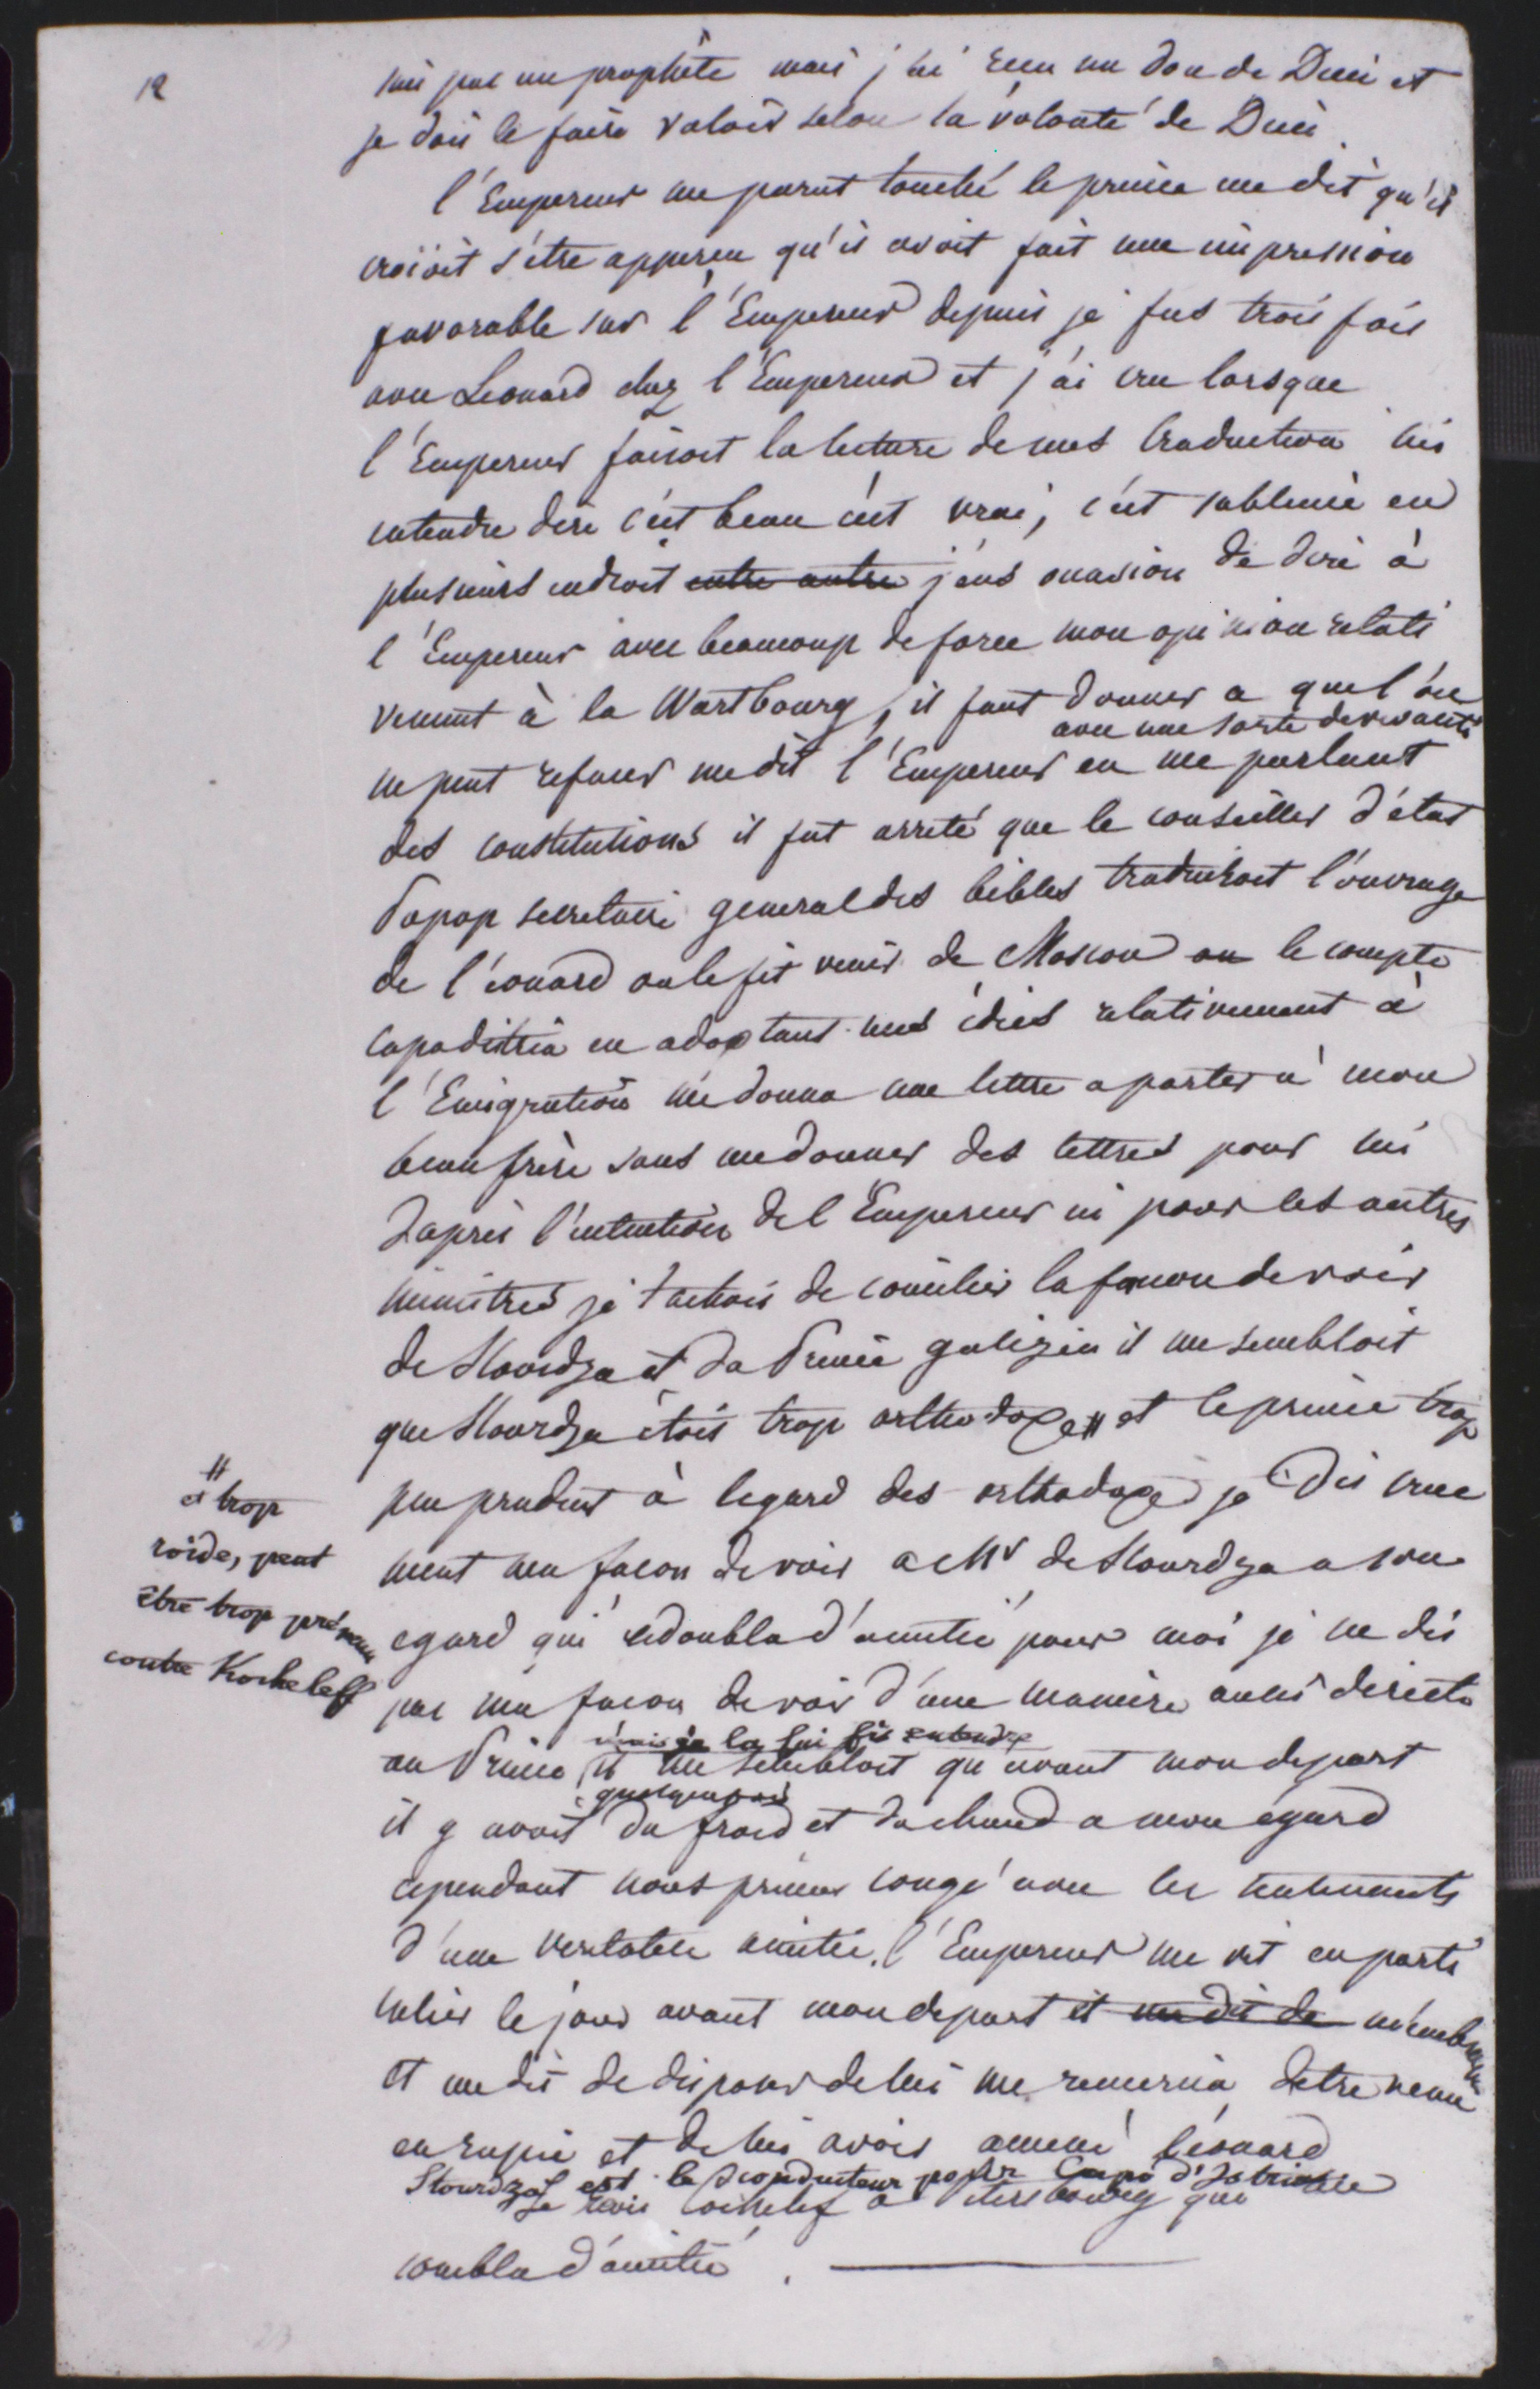 12
suis pas un prophête mais j'ai recu un don de Dieu et
je dois le faire valoir selon la volonté de Dieu
l'Empereur me parut touché le prince me dit qu'il
croioit s'être apperçu qu'il avoit fait une impression
favorable sur l'Empereur depuis je fus trois fois
avec Leonard chez l'Empereur et j'ai cru lorsque
l'Empereur faisoit la lecture de mes traduction lui
entendre dire c'est beau c'est vrai, c'est sublime en
plusieurs endroit entre autre j'eus occasion de dire à
l'Empereur avec beaucoup de force mon opinion relati
vement à la Wartbourg, il faut donner a que l'on
avec une sorte de
ne peut refuser me dit l'Empereur en me parlant
des constitutions il fut arreté que le conseiller d'état
Papop secretaire general des bibles traduiroit l'ouvrage
de l'éonard on le fit venir de Moscou ou le compte
Capadistria en adoptant mes idées relativement à
l'Emigration me donna une lettre a porter a mon
beau frère sans me donner des lettres pour lui
d'après l'intention de l'Empereur ni pour les autres
ministres je tachois de concilier la facon de voir
de Stourdza et du Prince galizin il me sembloit
que Stourdza étois trop orthodoxe # et le prince trop
# et trop
roide, peut
être trop prévenu
contre Kocheleff
peu prudent à legard des orthodoxe je dis crue
ment ma facon de voir a Mr de Stourdza a son
egard qui redoubla d'amitié pour moi je ne dis
pas ma facon de voir d'une maniere aussi directe
mais je la lui fis entendre
au Prince, il me sembloit qu'avant mon depart
quelquefois
il y avoit du froid et du chaud a mon égard
cependant nous primes congé avec les sentiments
d'une veritable amitié. l'Empereur me vit en parti
culier le jour avant mon depart et me dit de m'embrassa
et me dit de disposer de lui me remercia d'etre venu
en rupie et de lui avoir amené léonard
Stourdza est le traducteur pour Capo d'Istria
Je revis Cochelef a Petersbourg qui
combla d'amitié.